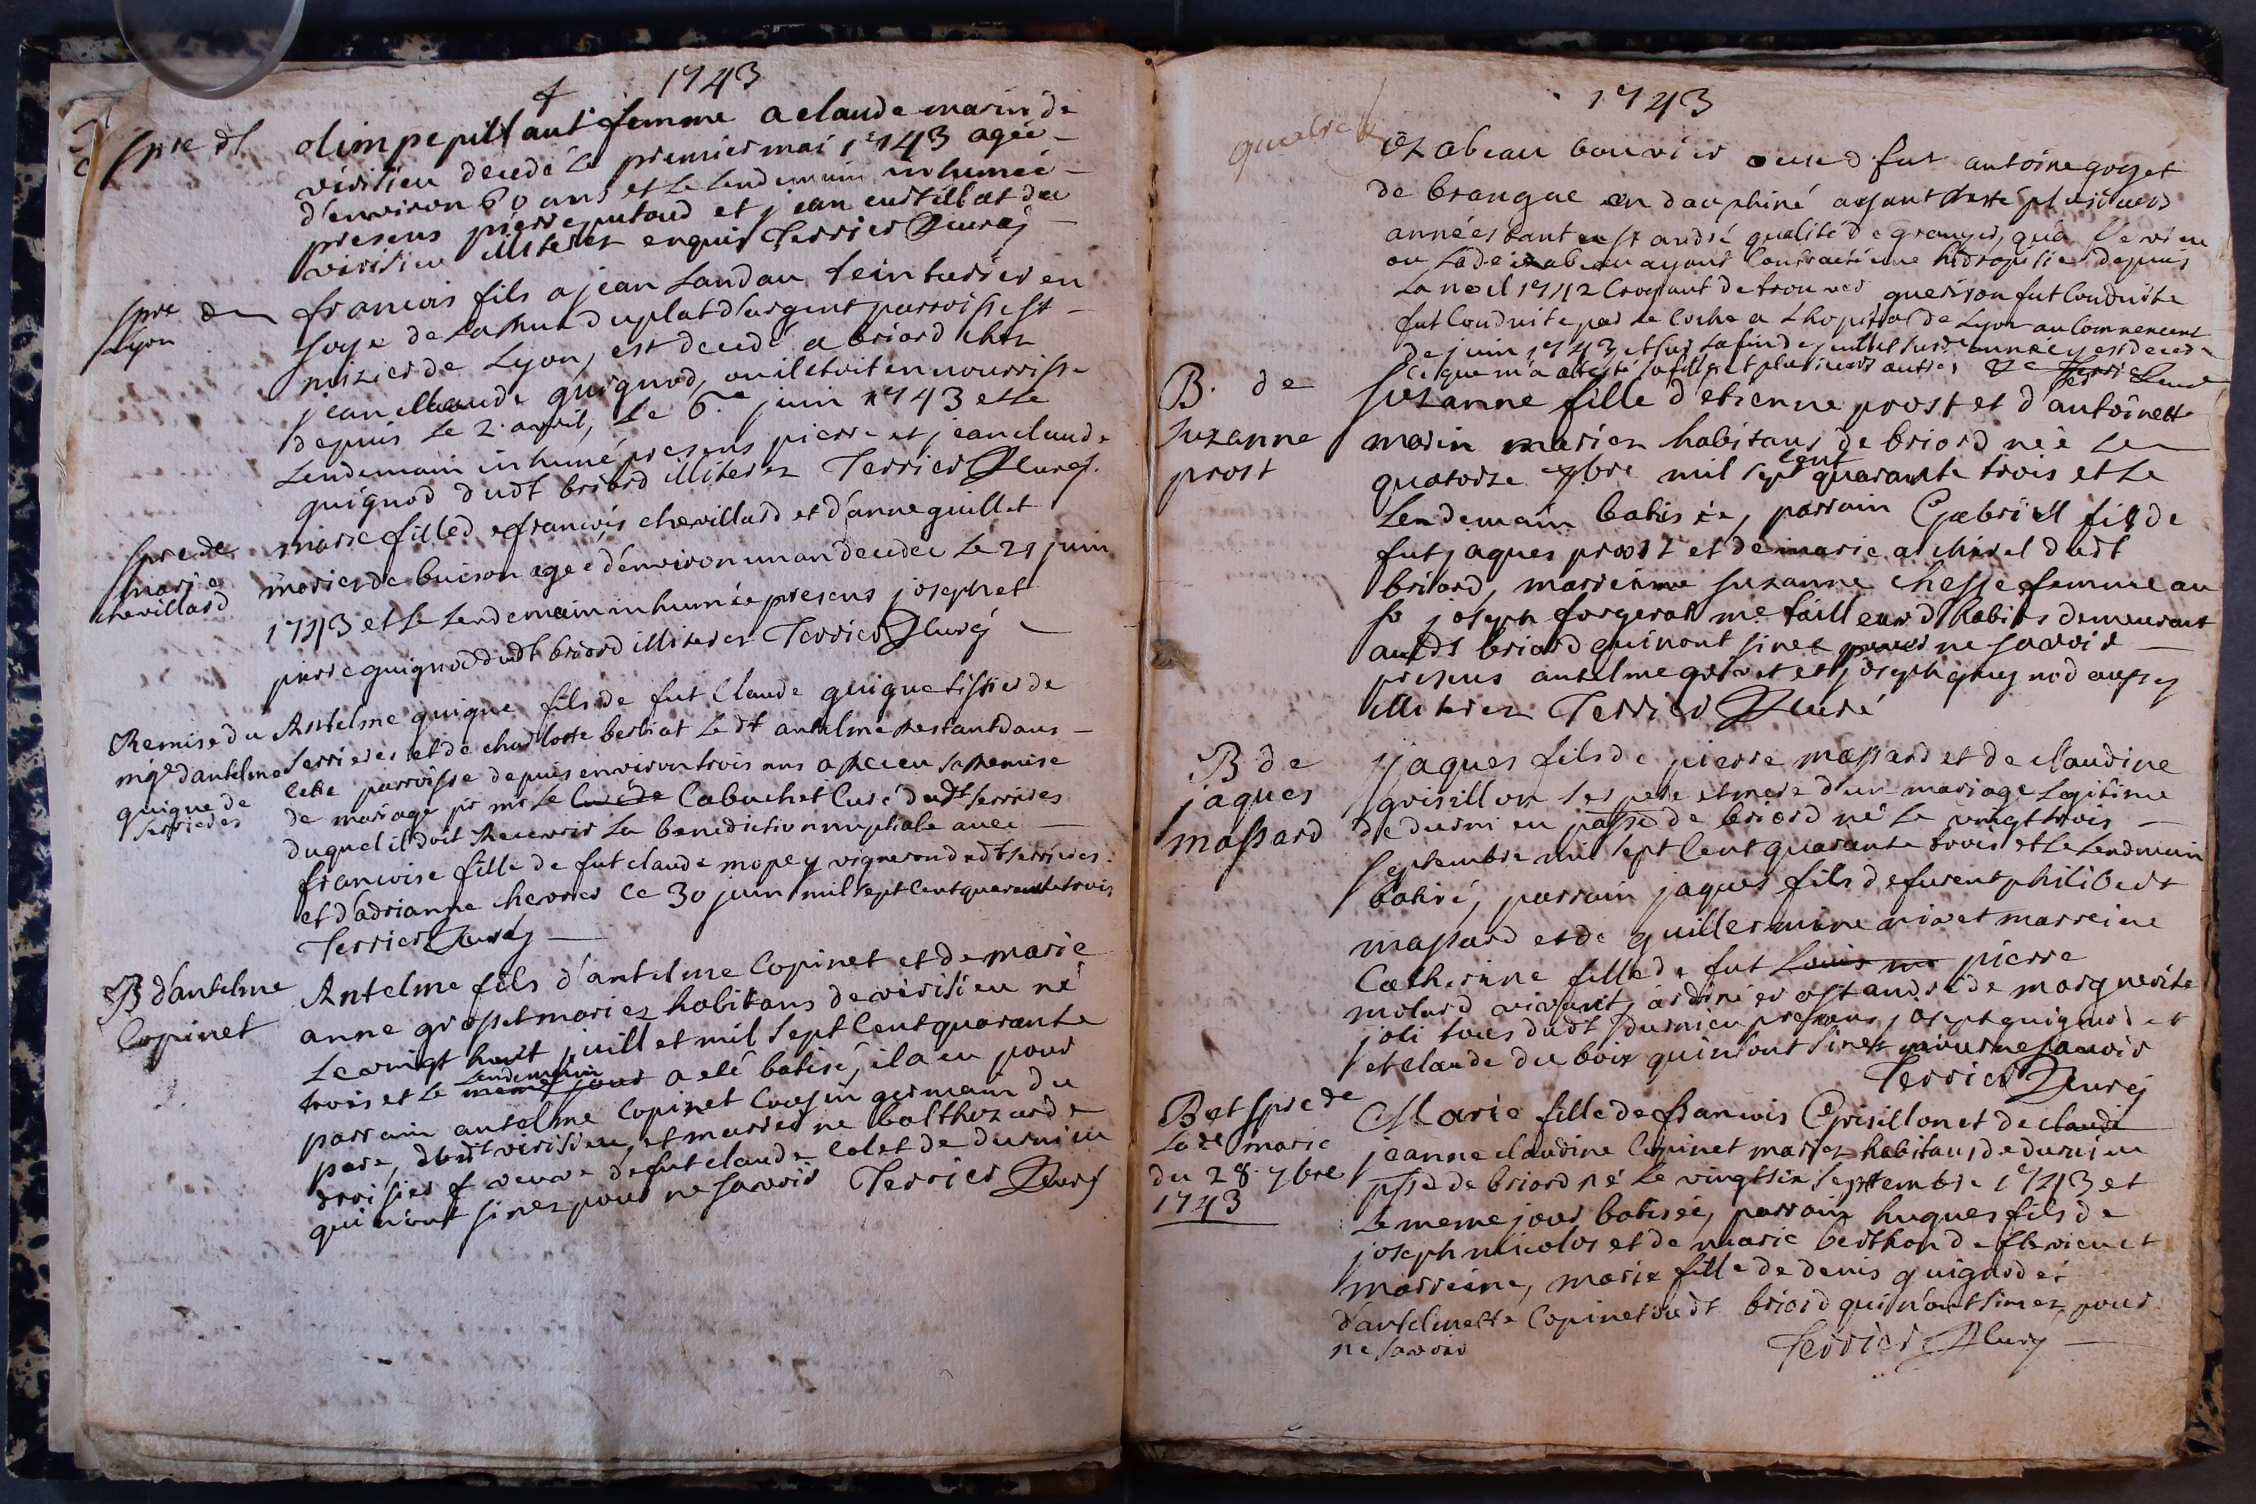 1743
spre d'
olimpe pillaut femme a claude marin de
virisieu decedé le premier mai 1743 agée
d'environ 60 ans et le lendemain inhumée
presens pierre putoud et jean custillat du
virisieu illiterez enquis Terrier curé
spre de
Lyon
francois fils a jean landau teinturier en
soye de la rue du plat d'argent parroisse st
nizier de Lyon, est decedé a briord chez
jean claude guignod, ou il etoit en nourrisse
depuis le 2 avril, le 6.e juin 1743 et le
lendemain inhumé presens pierre et jean claude
guignod dudt briord illiterez Terrier curé.
spre de
marie
chevillard
marie fille de francois chevillard et d'anne guillet
mariez de buison agee d'environ un an decedee le 21 juin
1743 et le lendemain inhumée presens joseph et
pierre guignod dudt briord illiterez Terrier curé
Remise du
mge d'antelme
guigue de
serrieres
Antelme guigue fils de fut Claude guigue tissier de
serrieres et de charlotte berliat le dt antelme restant dans
cette parroisse depuis environ trois ans a receu sa remise
de mariage pr mr le curé de Cabuchet curé dudt serrieres
duquel il doit recevoir la benediction nuptiale avec
francoise fille de fut claude mopey vigneron dudt serrieres
et d'adrianne chevrier ce 30 juin mil sept cent quarante trois
Terrier curé
B d'antelme
Copinet
Antelme fils d'antelme Copinet et de marie
anne grosset mariez habitans de virisieu né
le vingt huit juillet mil sept cent quarante
trois et le meme jour lendemain a eté batisé, il a eu pour
parrain antelme Copinet cousin germain du
pere, dudt virisieu, et marreine balthazarde
droisier veuve de fut claude colet de durnieu
qui n'ont sinez pour ne savoir Terrier curé
1743
quatre
izabeau bouvier veuve d fut antoine goyet
de brangue en dauphiné ayant resté plusieurs
années tant a st andré qualité de granger, qua
ou la de izabeau ayant contracté une hidropisie depuis
la noel 1742 croyant de trouver guerison fut conduitte
fut conduite par le coche a l'hopital de Lyon au commencent
de juin 1743 et sur la fin de juillet susde année y est decede
ce que m'a atesté sa fille et plusieurs autres Terrier curé
B. de
suzanne
prost
suzanne fille d'etienne prost et d'antoinette
marin mariez habitans de briord née le
quatorze 7bre mil sept cent quarante trois et le
lendemain batisée, parrain Gabriel fils de
fut jaques prost et de marie archirel dudt
briord, marreinne suzanne chesse femme au
sr joseph forgerat me tailleur d'habits demeurant
audt briord qui n'ont sinez pour ne savoir
presens antelme gravet et joseph guignod aussy
illiterez Terrier curé
B de
jaques
massard
jaques fils de pierre massard et de claudine
grisillon ses pere et mere d'un mariage legitime
de durnieu passe de briord né le vingt trois
septembre mil sept cent quarante trois et le lendemain
batisé, parrain jaques fils de furent philibert
massard et de guillermine rivet marreine
Catherine fille de fut Louis mo pierre
molard vivant jardinier a st andré de marguerite
joli tous dudt durnieu presens joseph guignod et
et claude du bois qui n'ont sinez pour ne savoir
Terrier curé
B et spre de
la de marie
du 28. 7bre
1743
Marie fille de francois Grisillon et de claudi
jeanne claudine Copinet mariez habitans de durnieu
psse de briord né le vingt six septembre 1743 et
le meme jour batisée, parrain hugues fils de
joseph nicolas et de marie berthon de flevieu et
marreine, marie fille de denis guignod et
d'antelmette Copinet dudt briord qui n'ont sinez pour
ne savoir Terrier curé